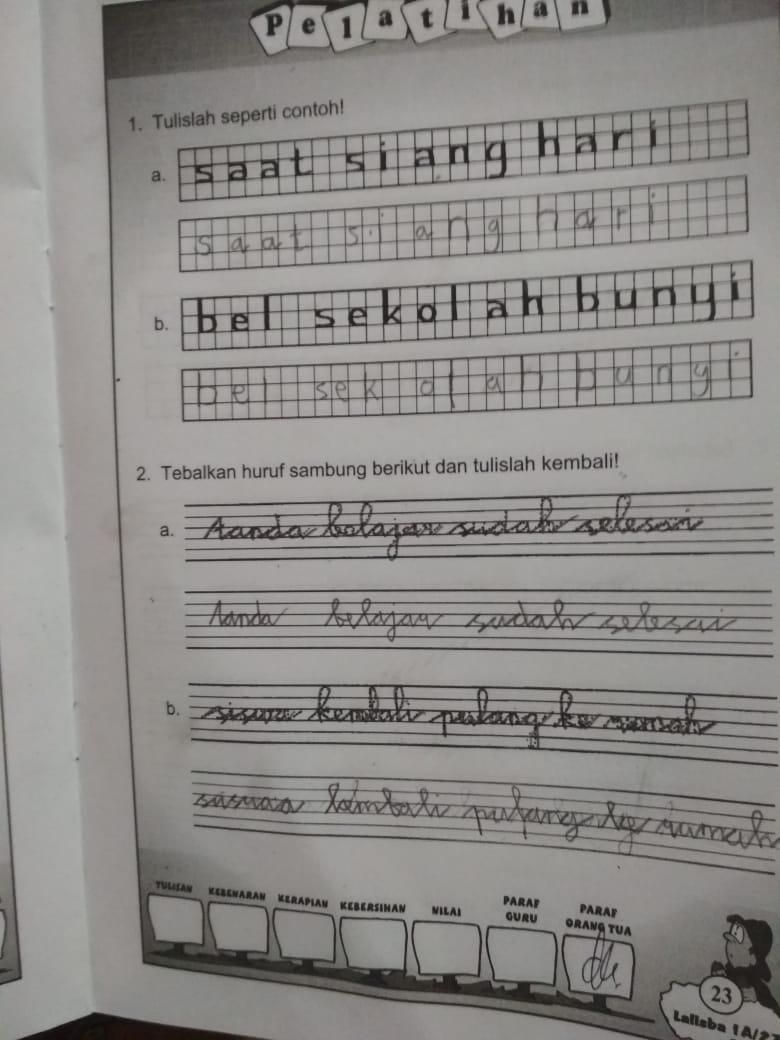 Pelatihan
1. Tulislah seperti contoh!
a. saat siang hari
saat siang hari
b. bel sekolah bunyi
bel sekolah bunyi
2. Tebalkan huruf sambung berikut dan tulislah kembali!
a. Tanda belajar sudah selesai
Tanda belajar sudah selesai
b. siswa kembali pulang ke rumah
kembali pulang ke rumah
TULISAN KEBENARAN KERAPIAN KEBERSIHAN NILAI PARAF GURU PARAF ORANG TUA
23
Lalisba 1A/